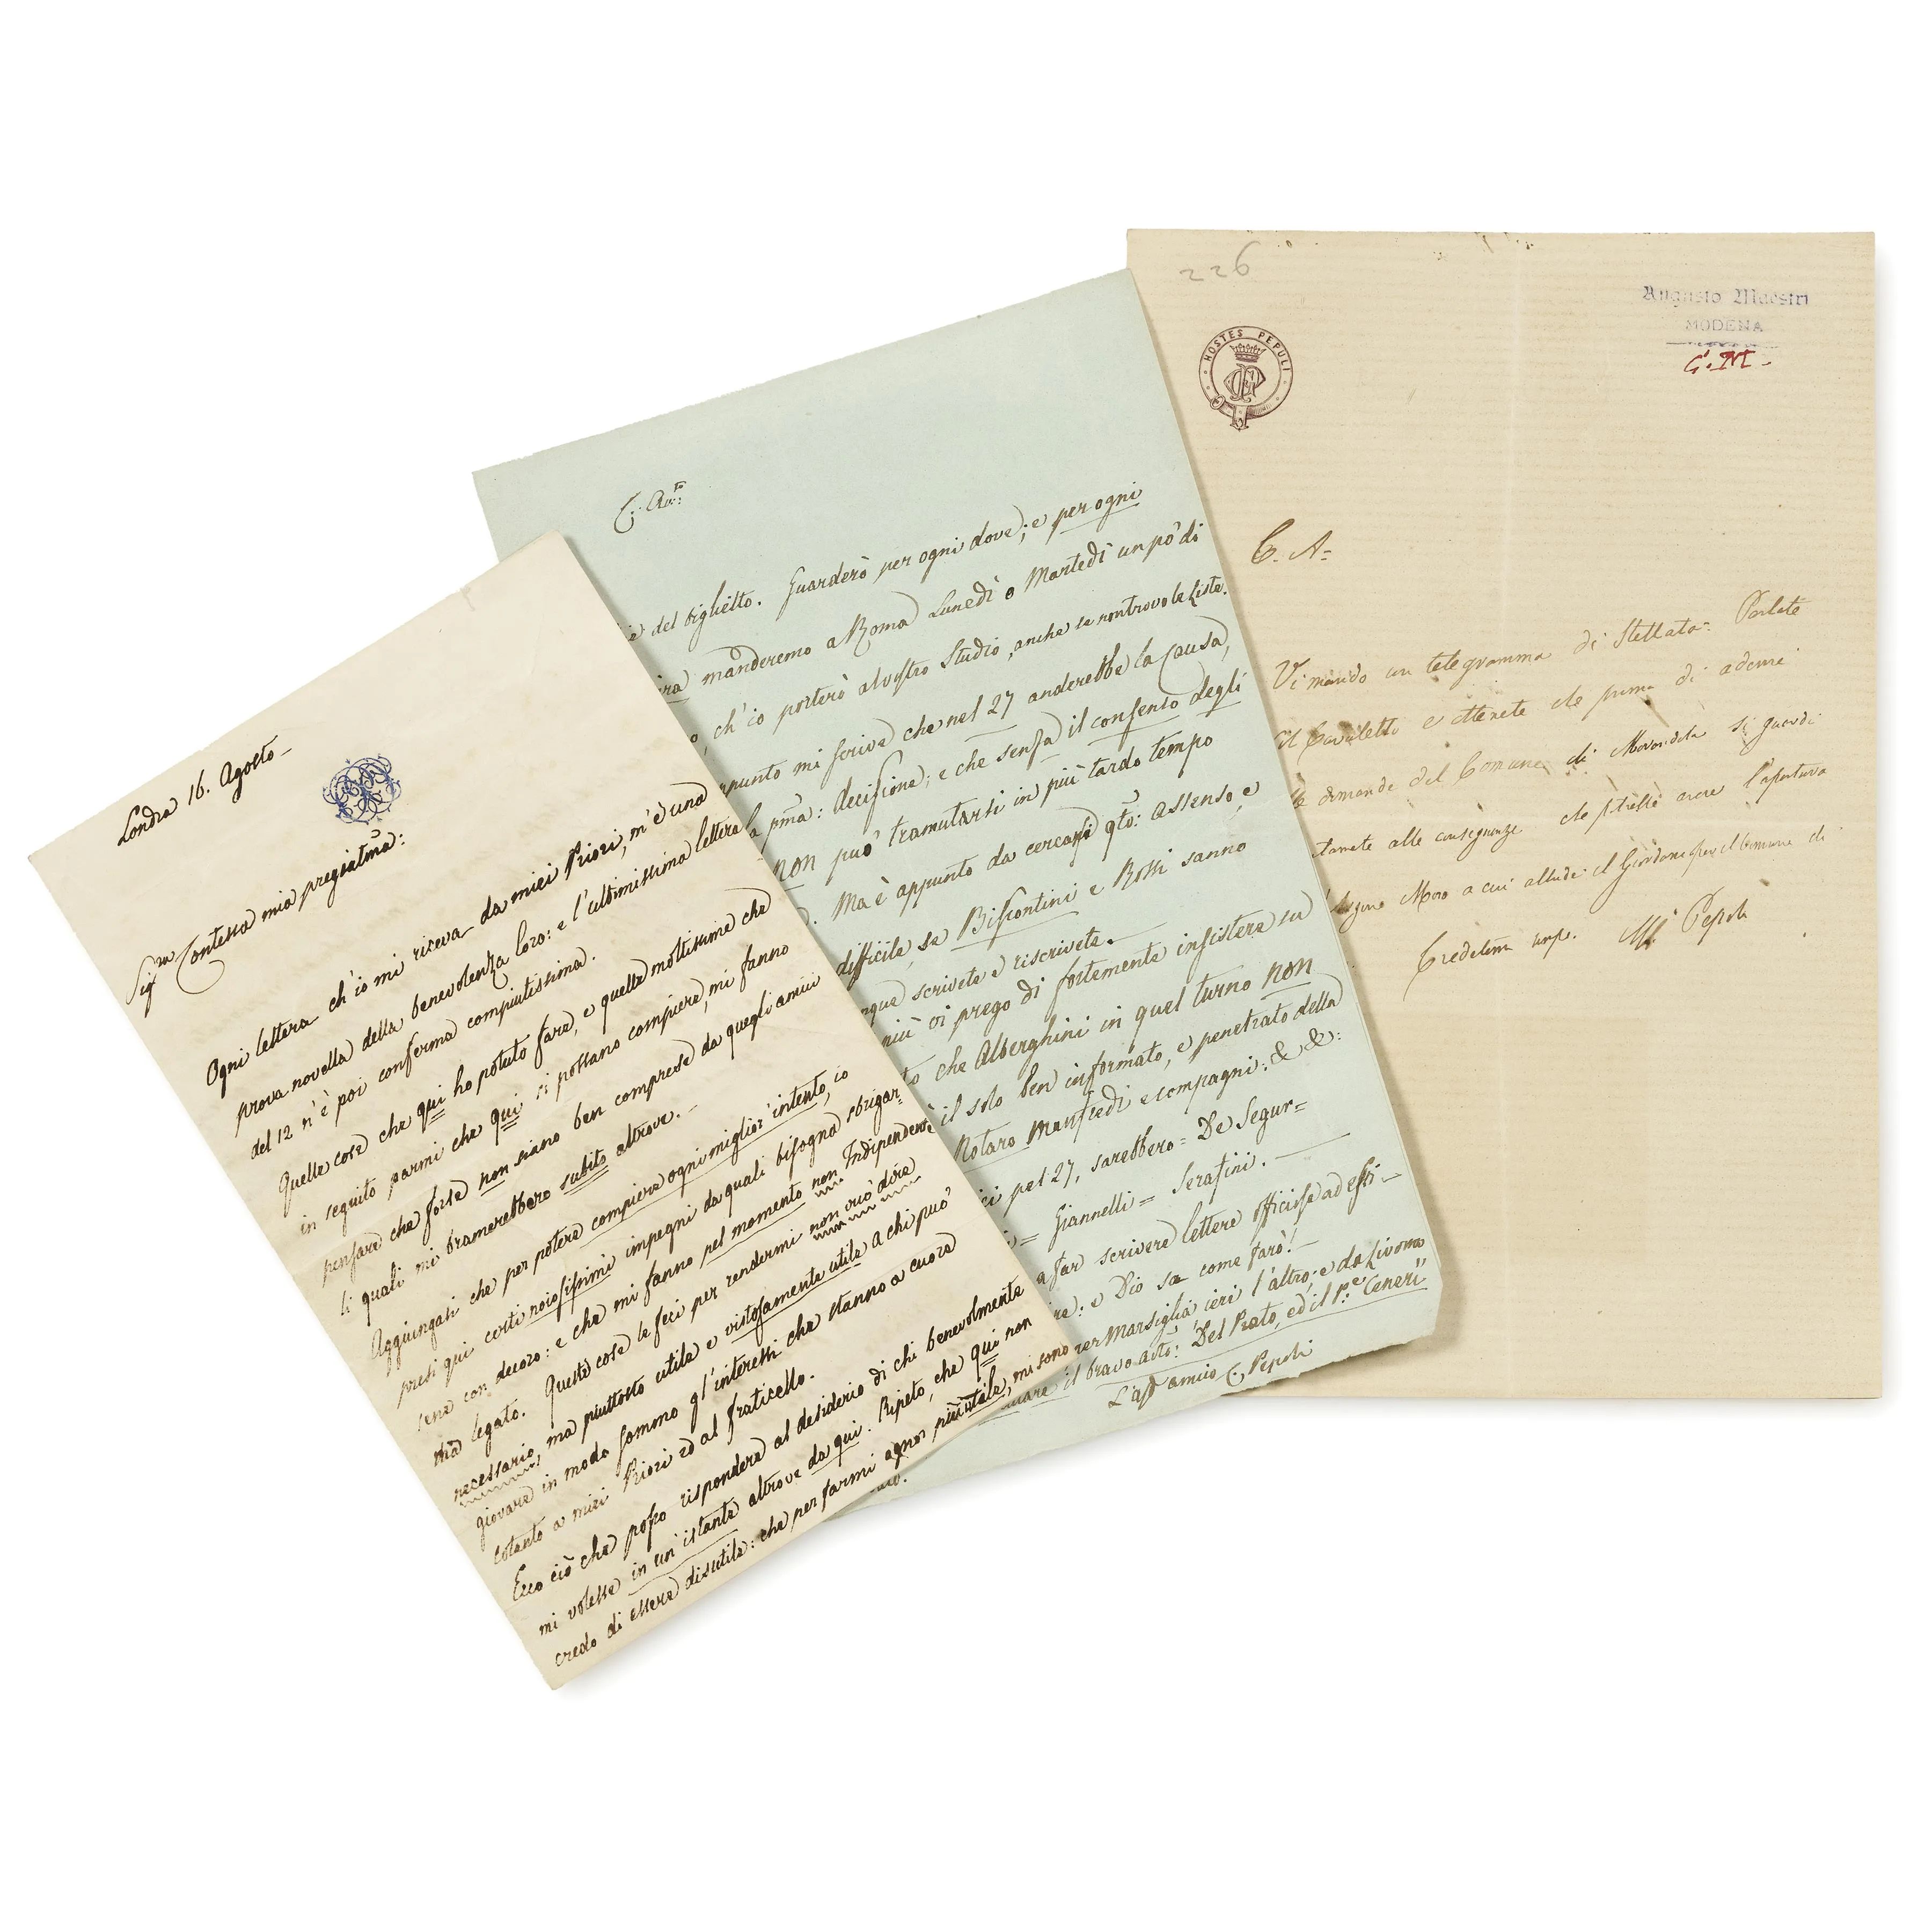 Londra 16. Agosto-
Sigra Contessa mia pregiatma:
Ogni lettera ch'io mi riceva da miei Priori, m'è una
prova novella della benevolenza loro: e l'ultimissima lettera
del 12 n'è poi conferma compiutissima.
Quelle cose che qui ho potuto fare, e quelle moltissime che
in seguito parmi che qui si possano compiere, mi fanno
pensare che forse non siano ben comprese da quegli amici
li quali mi bramerebbero subito altrove.-
Aggiungasi che per potere compiere ogni miglior' intento, io
presi qui certi noiosissimi impegni da quali bisogna sbrigar=
sene con decoro: e che mi fanno pel momento non Indipendente
ma legato. Queste cose le feci per rendermi non vuò dire
necessario, ma piuttosto utile e vistosamente utile a chi può
giovare in modo sommo gl'interessi che stanno a cuore
cotanto a miei Priori ed al fraticello.
Ecco ciò che posso rispondere al desiderio di chi benevolmente
mi volesse in un' istante altrove da qui. Ripeto, che qui non
credo di essere disutile: che per farmi ognor più utile, mi sono
C. Amo:
del biglietto. Guarderò per ogni dove; e per ogni
manderemo a Roma Lunedì o Martedì un pò di
ch'io porterò al vostro Studio, anche se non trovo le Liste.
appunto mi scrive che nel 27 anderebbe la Causa,
la pma: decisione; e che senza il consenso degli
non può tramutarsi in più tardo tempo
. Ma è appunto da cercarsi qto: assenso, e
difficile, se Bisontini e Rossi sanno
scrivete e riscrivete.
più vi prego di fortemente insistere su
che Alberghini in quel turno non
è il solo ben informato, e penetrato della
Notaro Manfredi e compagni: & &:
pel 27, sarebbero= De Segur=
= Giannelli= Serafini.
a far scrivere lettere officiose ad essi-
: e Dio sa come farò!-
per Marsiglia ieri l'altro; e da Livorno
il bravo Del Prato, ed il Pe Ceneri"
L'aff amico C. Pepoli
226
HOSTES PEPULI
Augusto Maestri
MODENA
G. M-
C. A=
Vi mando un telegramma di Stellata= Parlate
il Cavaletto e ottenete che prima di aderire
le dimande del Comune di si guardi
alle conseguenze che potrebbe avere l'apertura
a cui allude il Giordani per il Comune di
Credetemi Pepoli